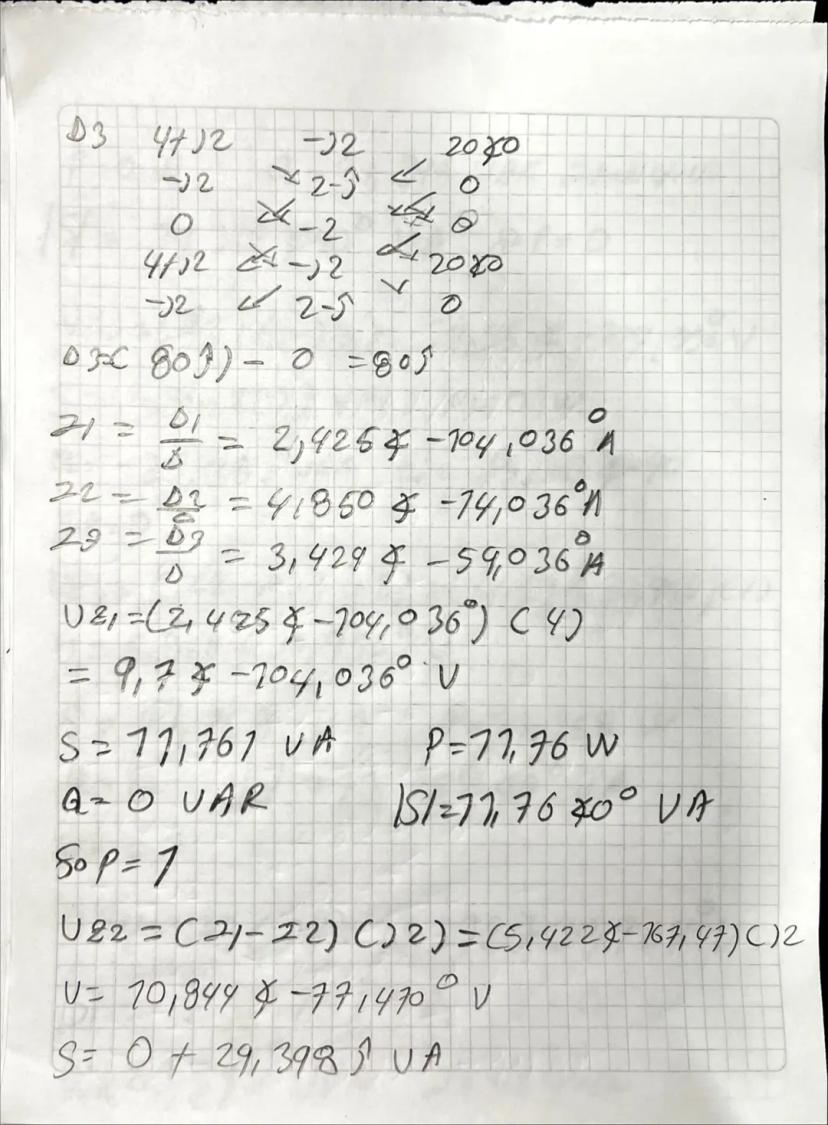 D3 4+j2 -j2 20∡0
-j2 2-j 0
0 -2 0
4+j2 -j2 20∡0
-j2 2-j 0
D3=( 80j) - 0 = 80j
I1 = D1/D = 2,425∡-104,036° A
I2 = D2/D = 4,850∡-14,036° A
I3 = D3/D = 3,429∡-59,036° A
VZ1=(2,425∡-104,036°) (4)
= 9,7∡-104,036° V
S= 11,761 VA P=11,76 W
Q= 0 VAR |S|=11,76∡0° VA
fp=1
VZ2 = (I1-I2) (j2) =(5,422∡-167,47)(j2
V= 10,844∡-77,470° V
S= 0 + 29,398j VA